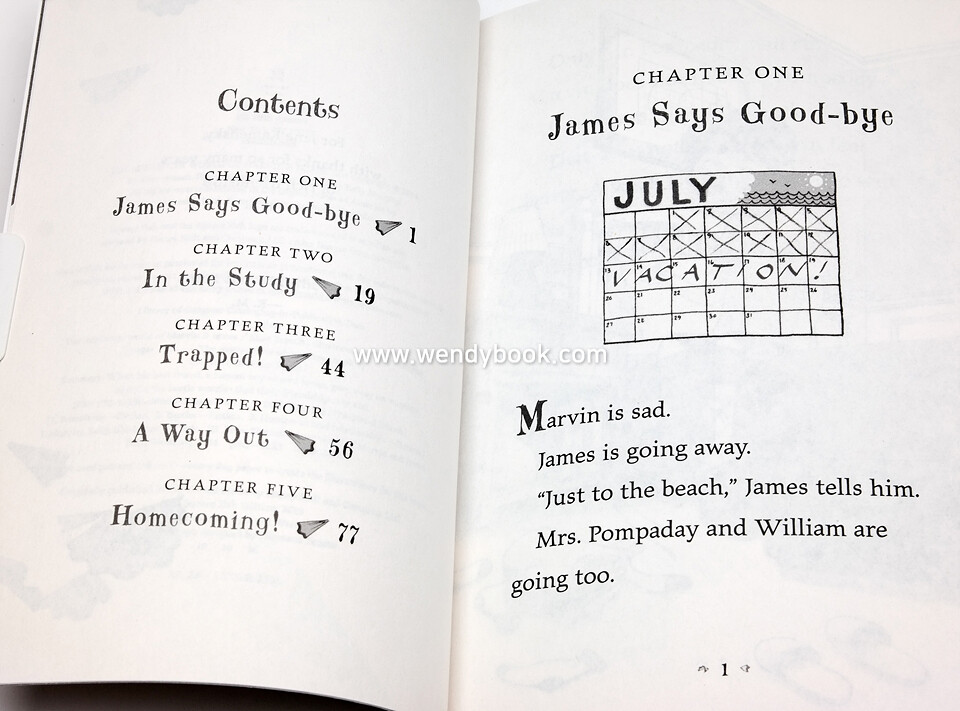 Contents
CHAPTER ONE
James Says Good-bye 1
CHAPTER TWO
In the Study 19
CHAPTER THREE
Trapped! 44
CHAPTER FOUR
A Way Out 56
CHAPTER FIVE
Homecoming! 77
www.wendybook.com
CHAPTER ONE
James Says Good-bye
JULY
1 2 3 4 5
6 7 8 9 10 11 12
13 14 15 16 17 18 19
VACATION!
20 21 22 23 24 25 26
27 28 29 30 31
Marvin is sad.
James is going away.
“Just to the beach,” James tells him.
Mrs. Pompaday and William are
going too.
1